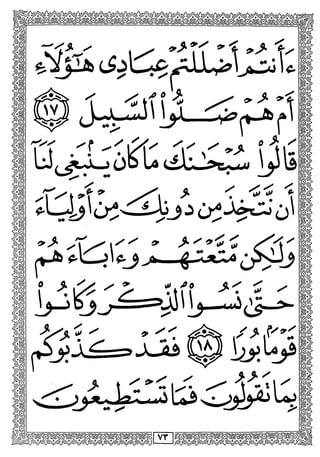 ءَأَنتُمْ أَضْلَلْتُمْ عِبَادِى هَٰٓؤُلَآءِ
أَمْ هُمْ ضَلُّوا۟ ٱلسَّبِيلَ ١٧
قَالُوا۟ سُبْحَٰنَكَ مَا كَانَ يَنۢبَغِى لَنَآ
أَن نَّتَّخِذَ مِن دُونِكَ مِنْ أَوْلِيَآءَ
وَلَٰكِن مَّتَّعْتَهُمْ وَءَابَآءَهُمْ
حَتَّىٰ نَسُوا۟ ٱلذِّكْرَ وَكَانُوا۟
قَوْمًۢا بُورًا ١٨ فَقَدْ كَذَّبُوكُم
بِمَا تَقُولُونَ فَمَا تَسْتَطِيعُونَ
٧٣